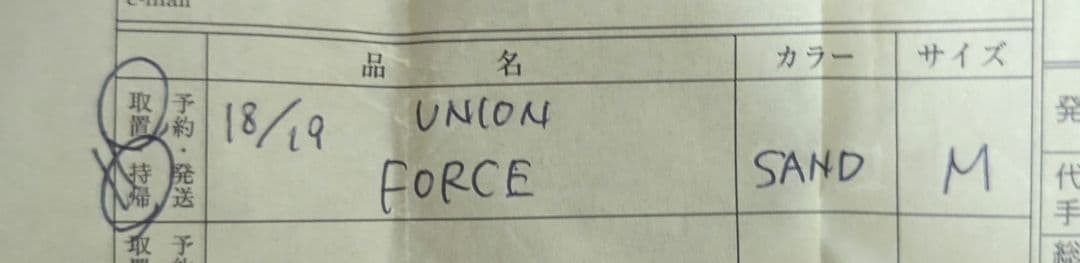 e-mail
品名 カラー サイズ
取置 予約・発送 持帰
18/19 UNION
FORCE SAND M
取置 予約
発
代
手
総